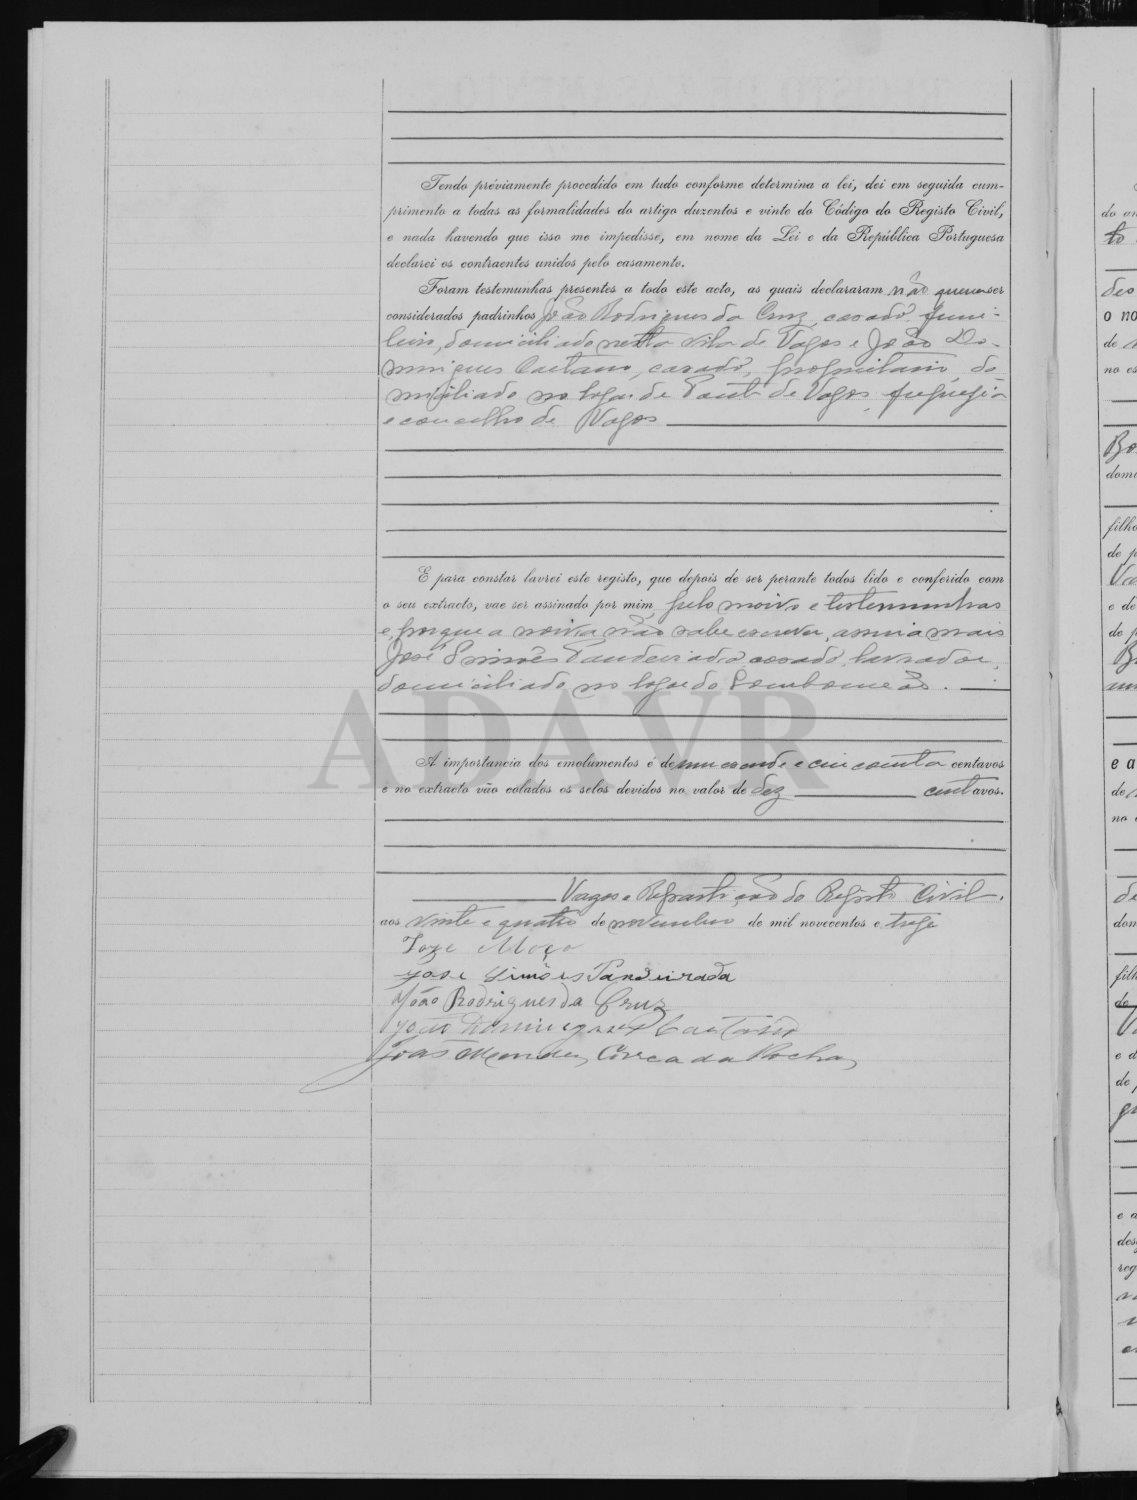 Tendo préviamente procedido em tudo conforme determina a lei, dei em seguida cum-
primento a todas as formalidades do artigo duzentos e vinte do Código do Registo Civil,
e nada havendo que isso me impedisse, em nome da Lei e da República Portuguesa
declarei os contraentes unidos pelo casamento.
Foram testemunhas presentes a todo este acto, as quais declararam não querem ser
considerados padrinhos João Rodrigues da Cruz, casado, funi-
leiro, domiciliado nesta vila de Vagos e João Do-
mingues Caetano, casado, proprietario, do
miciliado no logar de de Vagos, freguesia
e concelho de Vagos
E para constar lavrei este registo, que depois de ser perante todos lido e conferido com
o seu extracto, vae ser assinado por mim, pelo noivo e testemunhas
e, porque a noiva não sabe escrever, assina mais
José Simões Pandeirada, casado, lavrador,
domiciliado no logar do Lombomeão.
A importancia dos emolumentos é de um escudo e cincoenta centavos
e no extracto vão colados os selos devidos no valor de dez centavos.
Vagos e Repartição do Registo Civil,
aos vinte e quatro de novembro de mil novecentos e treze
Joze Moço
Jose Simões Pandeirada
João Rodrigues da Cruz
João Domingues Caetano
João Mendes Corrêa da Rocha
ADAVR